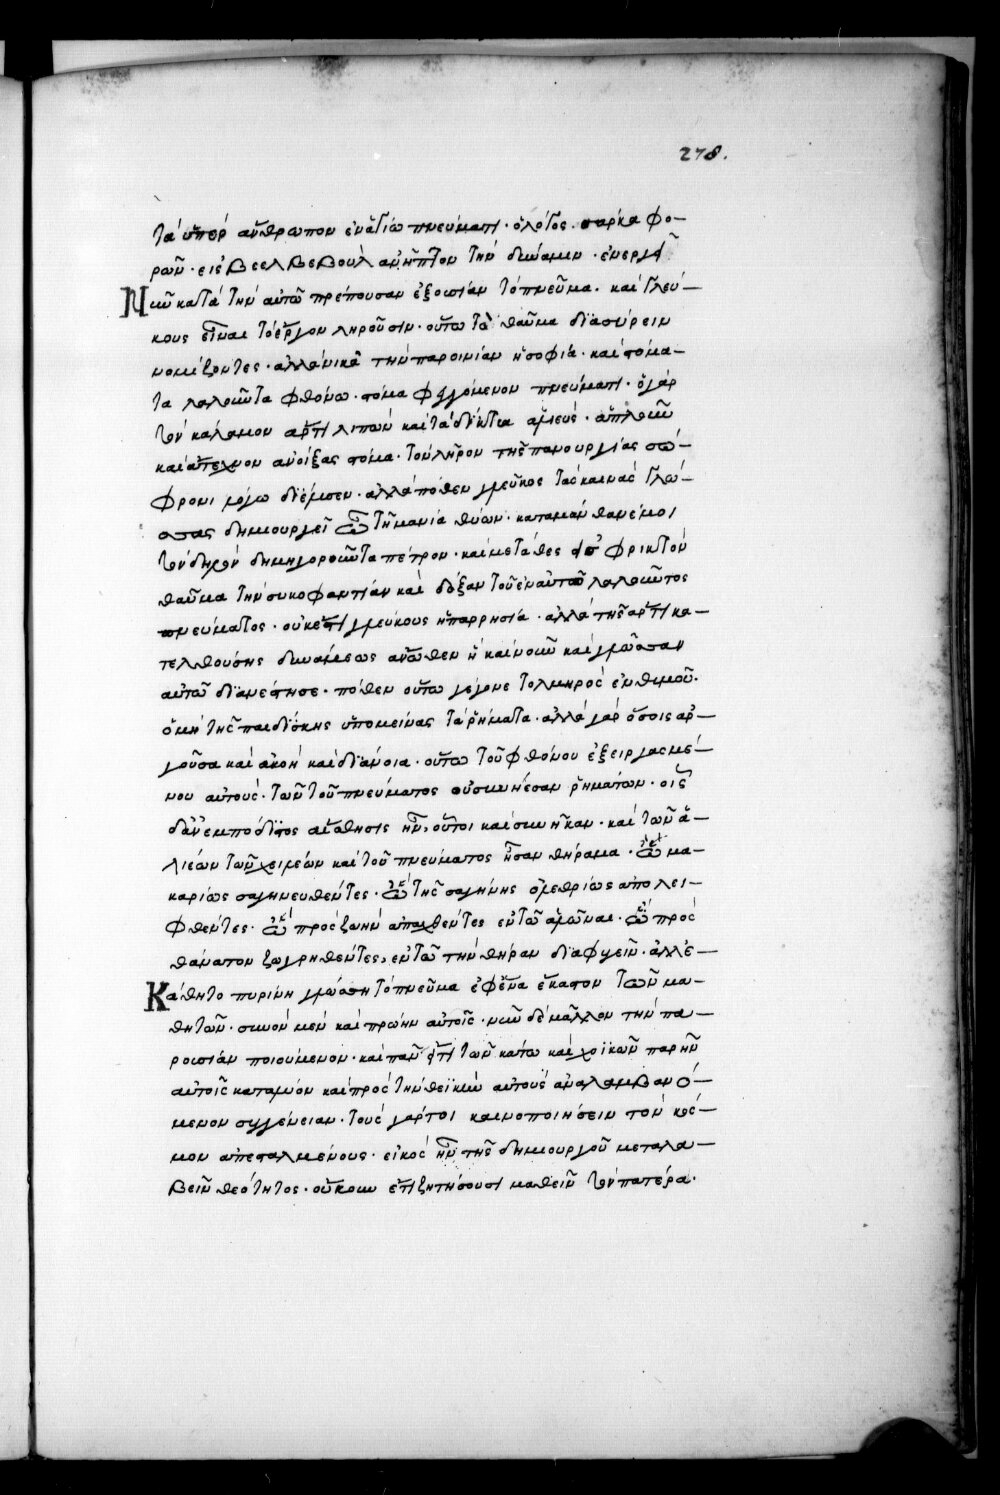 278.
τὰ ὑπὲρ ἄνθρωπον ἐν ἁγίω πνεύματι· ὁ λόγος σαρκα φο-
ρῶν· εἰς βεελζεβοὺλ ἀνῆπτον τὴν δύναμιν· ἐνεργεῖ
Νῦν κατὰ τὴν αὐτῶ πρέπουσαν ἐξουσίαν τὸ πνεῦμα· καὶ γλεύ-
κους εἶναι τὸ ἔργον ληροῦσιν· οὕτω τὸ θαῦμα διασύρειν
νομίζοντες· ἀλλὰ νικᾶ τὴν παροινίαν ἡ σοφία· καὶ στόμα-
τα λαλοῦντα φθόνω· στόμα φθεγγόμενον πνεύματι· ὁ γὰρ
τὸν κάλαμον ἄρτι λιπὼν καὶ τὰ δίκτυα ἁλιεύς· ἁπλοῦν
καὶ ἄτεχνον ἀνοίξας στόμα· τὸν λῆρον τῆς πανουργίας σώ-
φρονι λόγω διέλυσεν· ἀλλὰ πόθεν γλεῦκος τὰς καινὰς γλώ-
σσας δημιουργεῖ ὦ τῆ μανία θύων· καταμάνθανέ μοι
τὸν δημηγοροῦντα πέτρον· καὶ μετάθες εἰς φρικτὸν
θαῦμα τὴν συκοφαντίαν καὶ δόξαν τοῦ ἐν αὐτῶ λαλοῦντος
πνεύματος· οὐκ ἔστι γλεύκους ἡ παρρησία· ἀλλὰ τῆς ἄρτι κα-
τελθούσης δυνάμεως ἄνωθεν ἡ καὶ νοῦν καὶ γλῶσσαν
αὐτῶ διανέστησε· πόθεν οὕτω γέγονε τολμηρὸς ἐνθυμοῦ·
ὁ μὴ τῆς παιδίσκης ὑπομείνας τὰ ῥήματα· ἀλλὰ γὰρ ὅσοις ἀρ-
γοῦσα καὶ ἀκοὴ καὶ διάνοια· οὕτω τοῦ φθόνου ἐξειργασμέ-
νου αὐτούς· τῶν τοῦ πνεύματος οὐ συνίεσαν ῥημάτων· οἷς
δ' ἀνεμπόδιστος αἴσθησις ἦν, οὗτοι καὶ συνῆκαν· καὶ τῶν ἁ-
λιέων τῶν χειρεών καὶ τοῦ πνεύματος ἦσαν θήραμα· ὦ μα-
καρίως σαγηνευθέντες· ὦ τῆς σαγήνης ὀλεθρίως ἀπολει-
φθέντες· ὦ πρὸς ζωὴν ἀπαχθέντες ἐν τῶ ἁλῶναι· ὦ πρὸς
θάνατον ζωγρηθέντες, ἐν τῶ τὴν θήραν διαφυγεῖν· ἀλλ' ἐ-
Κάθητο πυρίνη γλώσση τὸ πνεῦμα ἐφ' ἕνα ἕκαστον τῶν μα-
θητῶν· συνὸν μὲν καὶ πρώην αὐτοῖς· νῦν δὲ μᾶλλον τὴν πα-
ρουσίαν ποιούμενον· καὶ πᾶν ὅτι τῶν κάτω καὶ χοϊκῶν παρῆν
αὐτοῖς καταλύον καὶ πρὸς τὴν θεϊκὴν αὐτοὺς ἀναλαμβανό-
μενον συγγένειαν· τοὺς γάρ τοι καινοποιήσειν τὸν κόσ-
μον ἀπεσταλμένους· εἰκὸς ἦν τῆς δημιουργοῦ μεταλα-
βεῖν θεότητος· οὔκουν ἔτι ζητήσουσι μαθεῖν τὸν πατέρα·